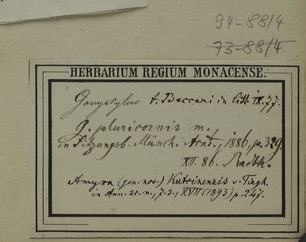 94-88/4
73-88/4
HERBARIUM REGIUM MONACENSE.
Gonystylus t. Beccari in litt. IX.77.
G. pluricornis m.
in Sitzungsb. Münch. Acad., 1886, p. 329.
XII. 86. Radlk.
Amyxa (gen. nov.) Kutcinensis v. Tiegh.
in Ann. sc. n., 7. s., XVII (1893) p. 247.